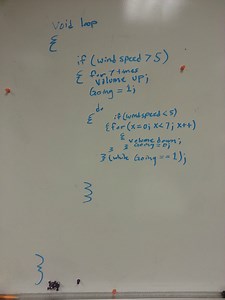 Void loop
{
if (wind speed > 5)
{ for 7 times
volume up;
Going = 1;
do
{ if (windspeed < 5)
{ for (x=0; x<7; x++)
{
volume down;
} } Going = 0;
} (while Going == 1);
}
}
}
}